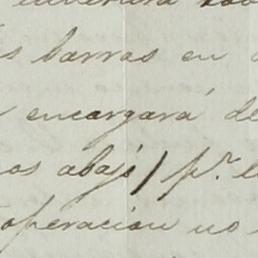 barras en
encargará de
abajo / pr.
operacion no